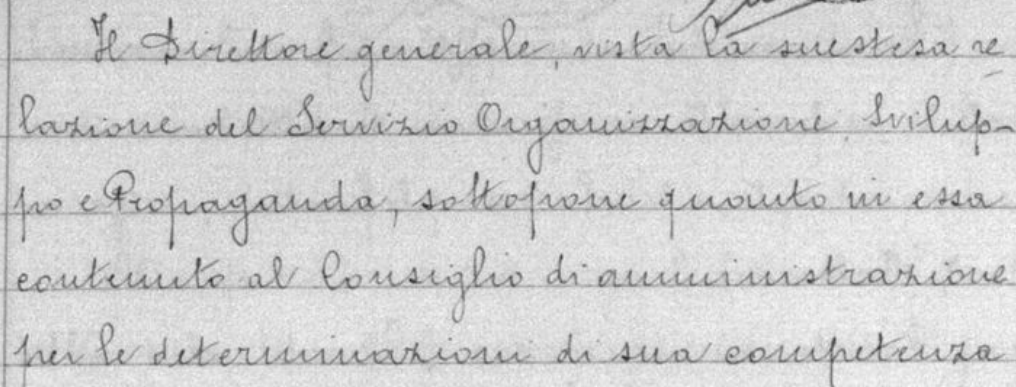 Il Direttore generale, vista la suestesa re
lazione del Servizio Organizzazione, Svilup-
po e Propaganda, sottopone quanto in essa
contenuto al Consiglio di amministrazione
per le determinazioni di sua competenza